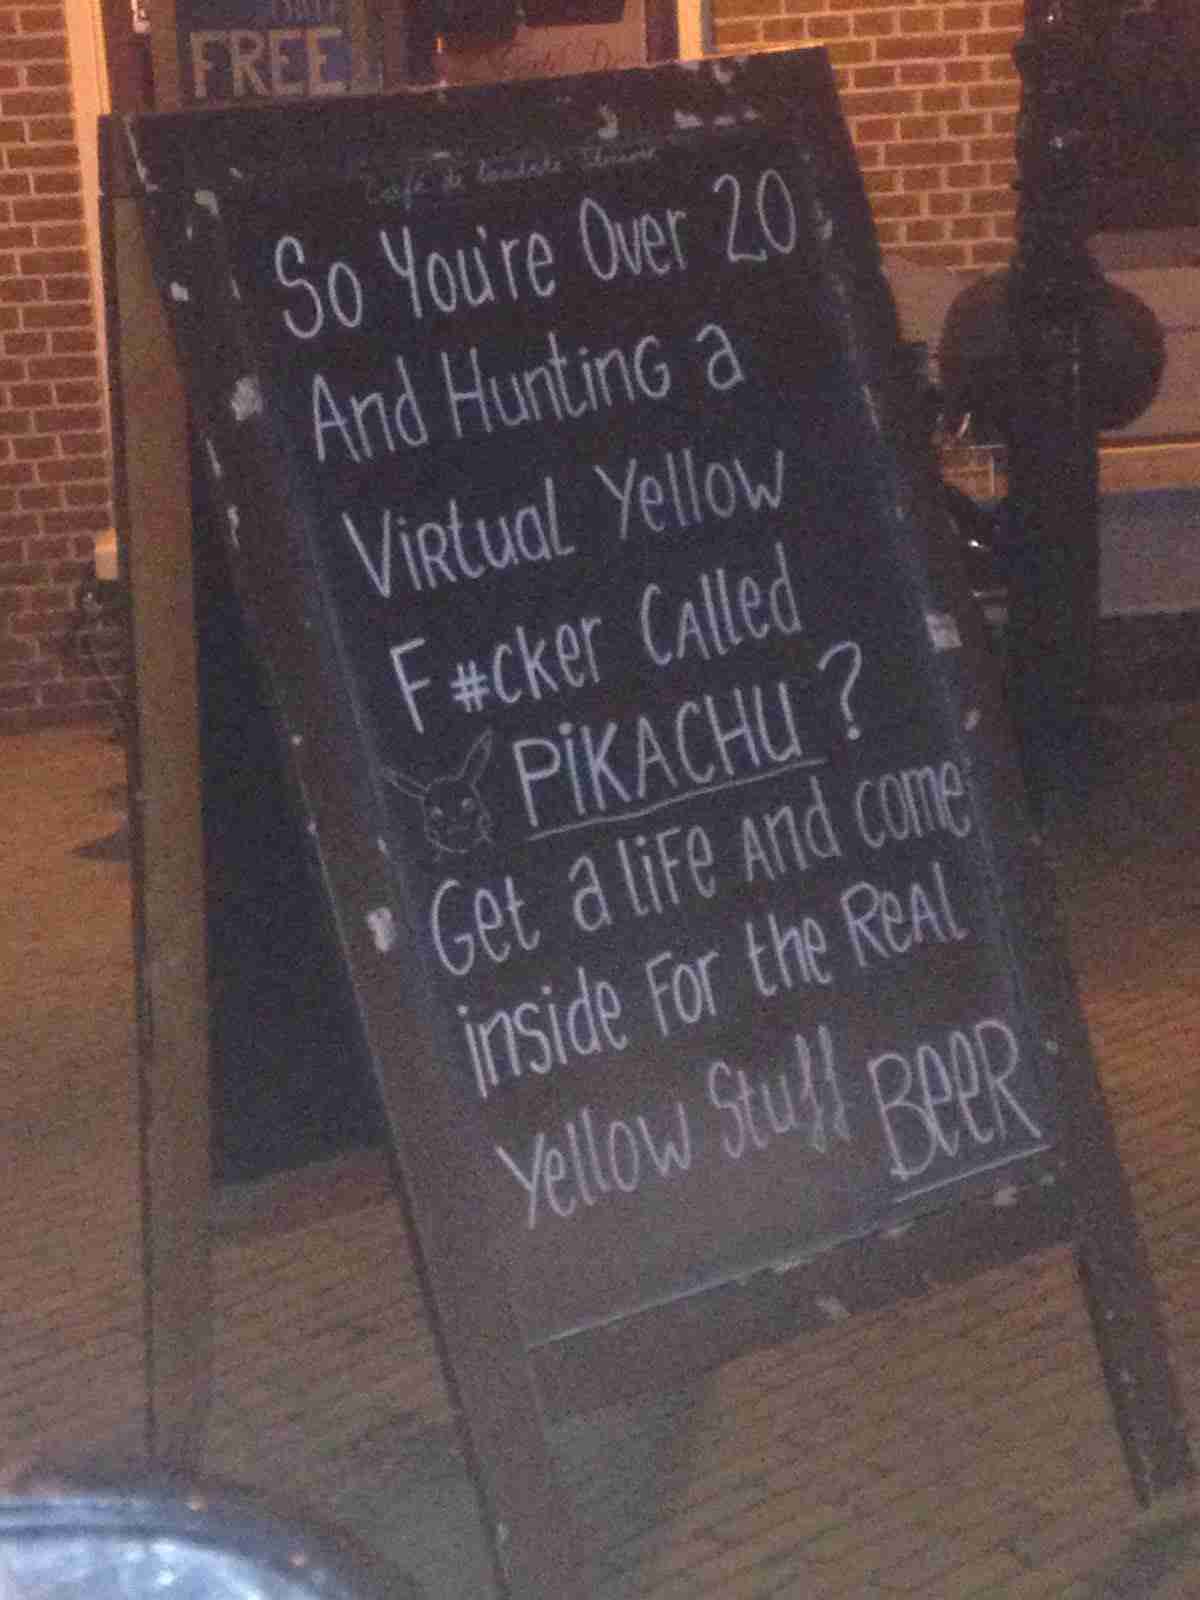 FREE
Café de
So You're Over 20
And Hunting a
Virtual Yellow
F#cker Called
PiKACHU?
Get a life And come
inside For the Real
Yellow Stuff BEER